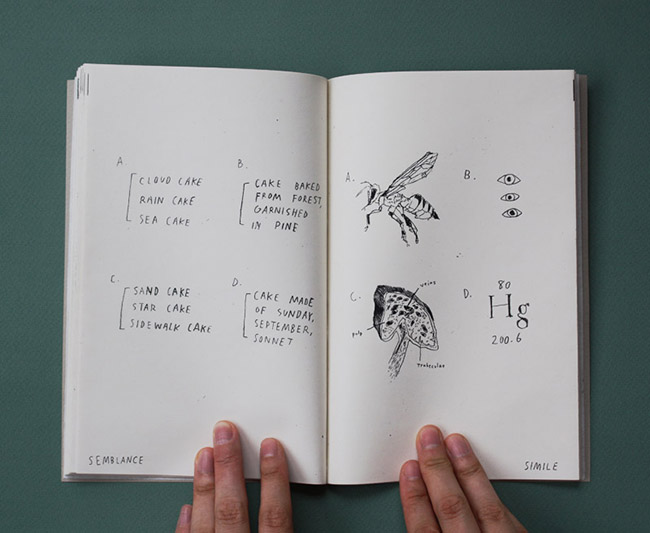 A.
CLOUD CAKE
RAIN CAKE
SEA CAKE
B.
CAKE BAKED
FROM FOREST,
GARNISHED
IN PINE
C.
SAND CAKE
STAR CAKE
SIDEWALK CAKE
D.
CAKE MADE
OF SUNDAY,
SEPTEMBER,
SONNET
SEMBLANCE
A.
B.
C.
veins
pulp
Trabeculae
D.
80
Hg
200.6
SIMILE